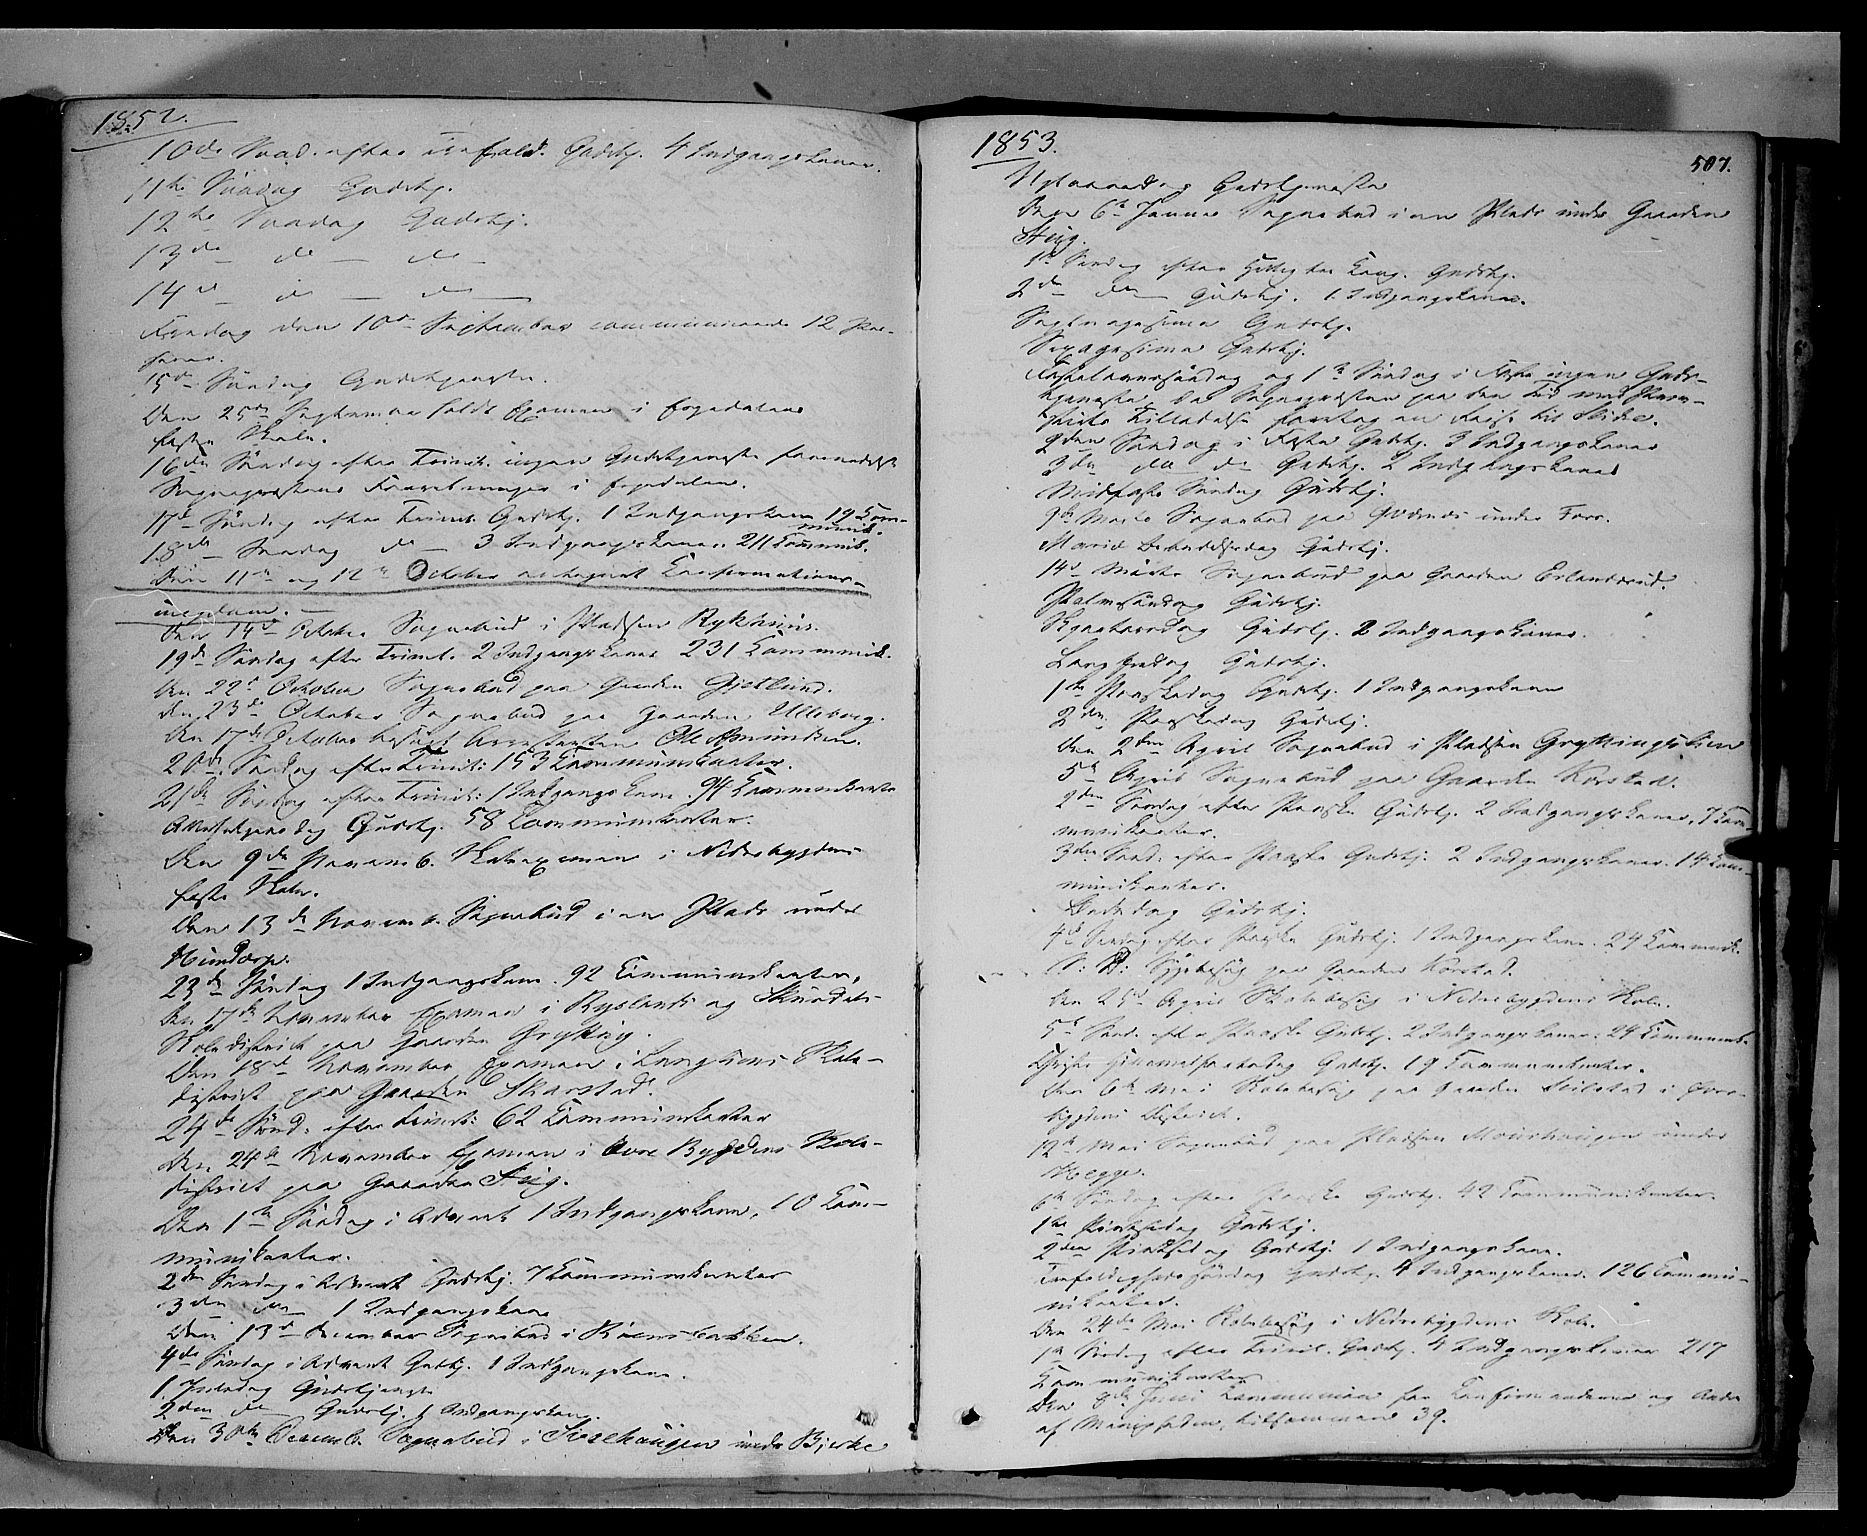 1852.
10de Sönd. efter Trefold. Gudstj. 4 Indgangskoner.
11te Söndag Gudstj.
12te Söndag Gudstj.
13de do do
14de do do
Fredag den 10de September communicerede 12 Per-
soner.
15de Söndag Gudstjeneste.
Den 25de September holdt Examen i
faste Skole.
16de Söndag efter Trinit. ingen Gudstjeneste formedelst
Sognepræstens Forretninger i
17de Söndag efter Trinit. Gudstj. 1 Indgangskone 19 Com-
munik.
18de Söndag do 3 Indgangskoner. 211 Commnik.
Den 11te og 12te October Confirmations-
Den 14de October Sognebud i Pladsen Rykhuus.
19de Söndag efter Trinit. 2 Indgangskoner 231 Commnik.
Den 22de October Sognebud paa Gaarden Gjetlund.
Den 23de October Sognebud paa Gaarden Ulleberg.
Den 17de October besögt Arrestanten Ole Amundsen.
20de Söndag efter Trinit: 153 Communikanter.
21de Söndag efter Trinit: 1 Indgangskone. 94 Communikanter
Allehelgensdag Gudstj. 58 Communikanter.
Den 9de Novemb. Skoleexamen i Nedrebygdens
faste Skole.
Den 13de Novemb. Sognebud i en Plads under
Hundorp.
23de Söndag 1 Indgangskone. 92 Communikanter,
Den 17de November Examen i Ryslands og
Skoledistrict paa Gaarden Grytting.
Den 18de November Examen i Skole-
district paa Gaarden Skarstad.
24de Sönd: efter Trinit: 62 Communikanter
Den 24de November Examen i Övre Bygdens Skole-
district paa Gaarden Stuig.
Den 1te Söndag i Advent 1 Indgangskone, 10 Com-
munikanter.
2den Söndag i Advent Gudstj. 7 Communikanter
3den do 1 Indgangskone
Den 13de December Sognebud i
4de Söndag i Advent Gudstj. 1 Indgangskone.
1. Juledag Gudstjeneste
2den do Gudstj. 1 Indgangskone.
Den 30te Decemb. Sognebud i under Bjerke
1853.
507.
Nytaarsdag Gudstjeneste
Den 6te Januar Sognebud i en Plads under Gaarden
Stuig.
1te Söndag efter Hellig tre Kong. Gudstj.
2den do Gudstj. 1 Indgangskone.
Septuagesima Gudstj.
Sexagesima Gudstj.
Fastelavnssöndag og 1te Söndag i Faste ingen Guds-
tjeneste, da Sognepræsten paa den Tid med Prov-
stens Tilladelse foretog en Reise til
2den Söndag i Faste Gudstj. 3 Indgangskoner
3die do do Gudstj. 2 Indgangskoner
Midfaste Söndag Gudstj.
9de Marts Sognebud paa under
Mariæ Bebudelsesdag Gudstj.
14de Marts Sognebud paa Gaarden Erlandsrud.
Palmesöndag Gudstj.
Skjærtorsdag Gudstj. 2 Indgangskoner.
Langfredag Gudstj.
1te Paaskedag Gudstj. 1 Indgangskone
2den Paaskedag Gudstj.
Den 2den April Sognebud i Pladsen Gryttingslien
5te April Sognebud paa Gaarden Korstad.
2den Söndag efter Paaske Gudstj. 2 Indgangskoner, 7 Com-
munikanter.
3den Sönd. efter Paaske Gudstj. 2 Indgangskoner. 14 Com-
munikanter.
Bededag Gudstj.
4de Söndag efter Paaske Gudstj. 1 Indgangskone. 24 Commnik.
S: D: Sygebesög paa Gaarden Korstad.
Den 25de April Skolebesög i Nedrebygdens Skole.
5te Sönd. efter Paaske Gudstj. 2 Indgangskoner. 24 Communik.
Christi Himmelfartsdag Gudstj. 19 Communikanter.
Den 6te Mai Skolebesög paa Gaarden i Övre-
bygdens District.
12te Mai Sognebud paa Pladsen under
Hegge.
6te Söndag efter Paaske Gudstj. 42 Communikanter.
1te Pintsedag Gudstj.
2den Pintsedag Gudstj. 1 Indgangskone.
Trefoldighedssöndag Gudstj. 4 Indgangskoner. 126 Commu-
nikanter.
Den 24de Mai Skolebesög i Nedrebygdens Skole.
1te Söndag efter Trinit. Gudstj. 4 Indgangskoner 217
Communikanter
Den 8de Juni Communion for Confirmanderne og Andre
af Menigheden, tilsammen 39.